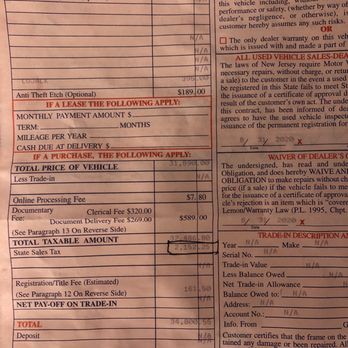 N/A
N/A
N/A
LOJACK 395.00
Anti Theft Etch (Optional) $189.00
IF A LEASE THE FOLLOWING APPLY:
MONTHLY PAYMENT AMOUNT $
TERM: MONTHS
MILEAGE PER YEAR
CASH DUE AT DELIVERY $
IF A PURCHASE, THE FOLLOWING APPLY:
TOTAL PRICE OF VEHICLE 31,890.00
Less Trade-in N/A
Online Processing Fee $7.80
Documentary Clerical Fee $320.00
Fee: Document Delivery Fee $269.00 $589.00
(See Paragraph 13 On Reverse Side)
TOTAL TAXABLE AMOUNT 32,486.80
State Sales Tax 2,152.25
N/A
Registration/Title Fee (Estimated) 161.50
(See Paragraph 12 On Reverse Side)
NET PAY-OFF ON TRADE-IN N/A
TOTAL 34,800.55
Deposit N/A
this vehicle, including,
performance or safety, (whether by way of
dealer's negligence, or otherwise),
customer hereby assumes any such risks.
OR
The only dealer warranty on this veh
which is issued with and made a part of
ALL USED VEHICLE SALES-DEA
The laws of New Jersey require Motor V
necessary repairs, without charge, or
a sale) to the customer in the event a used
be registered in this State fails to meet St
the issuance of a certificate of approval d
result of the customer's own act. The under
this contract, has been informed of
agrees to have the used vehicle inspect
issuance of the permanent registration for
8/ 31/ 2020 X
Date
WAIVER OF DEALER'S O
The undersigned, has read and unde
Obligation, and does hereby WAIVE AND
OBLIGATION to make repairs without ch
price (if a sale) if the vehicle fails to me
for the issuance of a certificate of approva
cle's rejection is an item which is "cover
Lemon/Warranty Law (P.L. 1995, Chpt
8/ 31/ 2020 X
Date
TRADE-IN DESCRIPTION A
Year N/A Make N/A
Serial No.
Trade-in Value N/A
Less Balance Owed N/A
Net Trade-in Allowance
Balance Owed to: N/A
Address: N/A
Account No.: N/A
Info. From G
Customer certifies that the frame on the
tained any damage or been repaired. All